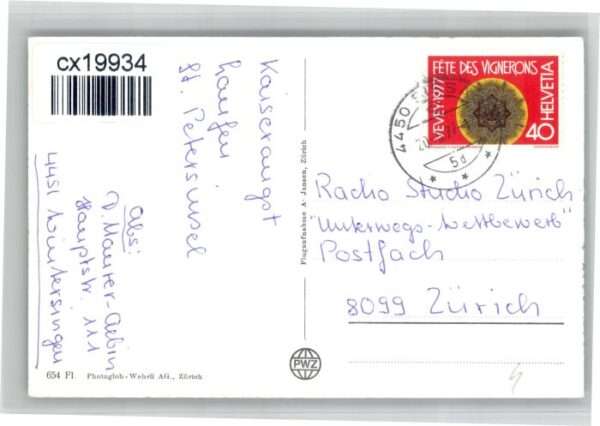 cx19934
Kaiseraugst
Laufen
St. Petersinsel
Abs:
D. Maurer-Aebin
Hauptstr. 111
4451 Wintersingen
654 Fl. Photoglob-Wehrli AG., Zürich
Flugaufnahme A. Jansen, Zürich
PWZ
FÊTE DES VIGNERONS
VEVEY·1977
HELVETIA
40
4450
5d
Radio Studio Zürich
"Unterwegs-Wettbewerb"
Postfach
8099 Zürich